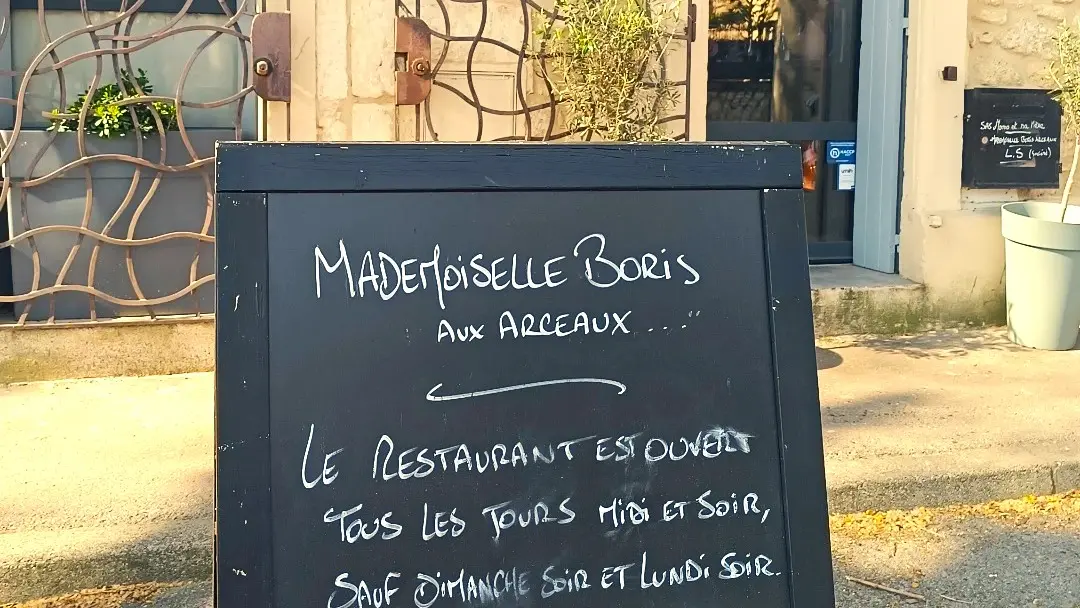 MADEMOISELLE BORIS
AUX ARCEAUX ...."
LE RESTAURANT EST OUVERT
TOUS LES JOURS MIDI ET SOIR,
SAUF DIMANCHE SOIR ET LUNDI SOIR.
SAS Mona et sa Mère
MADEMOISELLE BORIS ARCEAUX
L.S